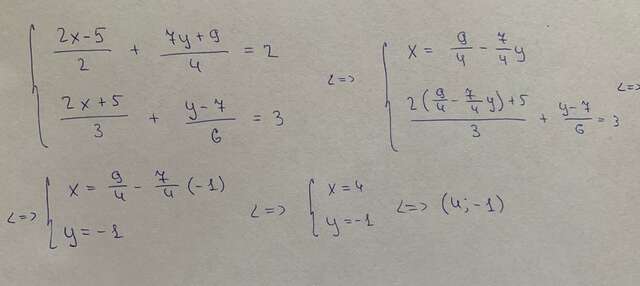 { (2x-5)/2 + (7y+9)/4 = 2
(2x+5)/3 + (y-7)/6 = 3
<=> { x = 9/4 - 7/4 y
(2(9/4 - 7/4 y)+5)/3 + (y-7)/6 = 3 <=>
<=> { x = 9/4 - 7/4 (-1)
y = -1
<=> { x = 4
y = -1 <=> (4; -1)